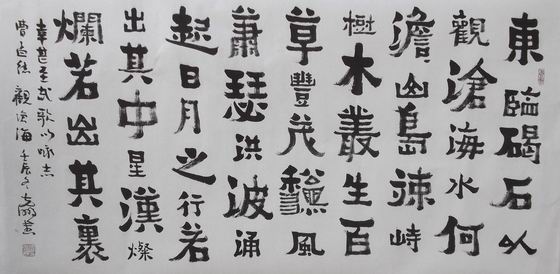 東臨碣石以
觀滄海水何
澹山島竦峙
樹木叢生百
草豐茂龝風
蕭瑟洪波涌
起日月之行若
出其中星漢燦
爛若出其裏
幸甚至哉歌以咏志
曹孟德觀滄海壬辰冬